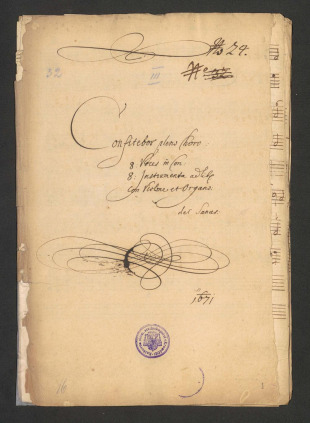 No 24.
32
III
Confitebor pleno Choro
8. Voces in Con.
8. Instrumenta ad lib.
Con Violone et Organo.
del Sances.
1671
16
1